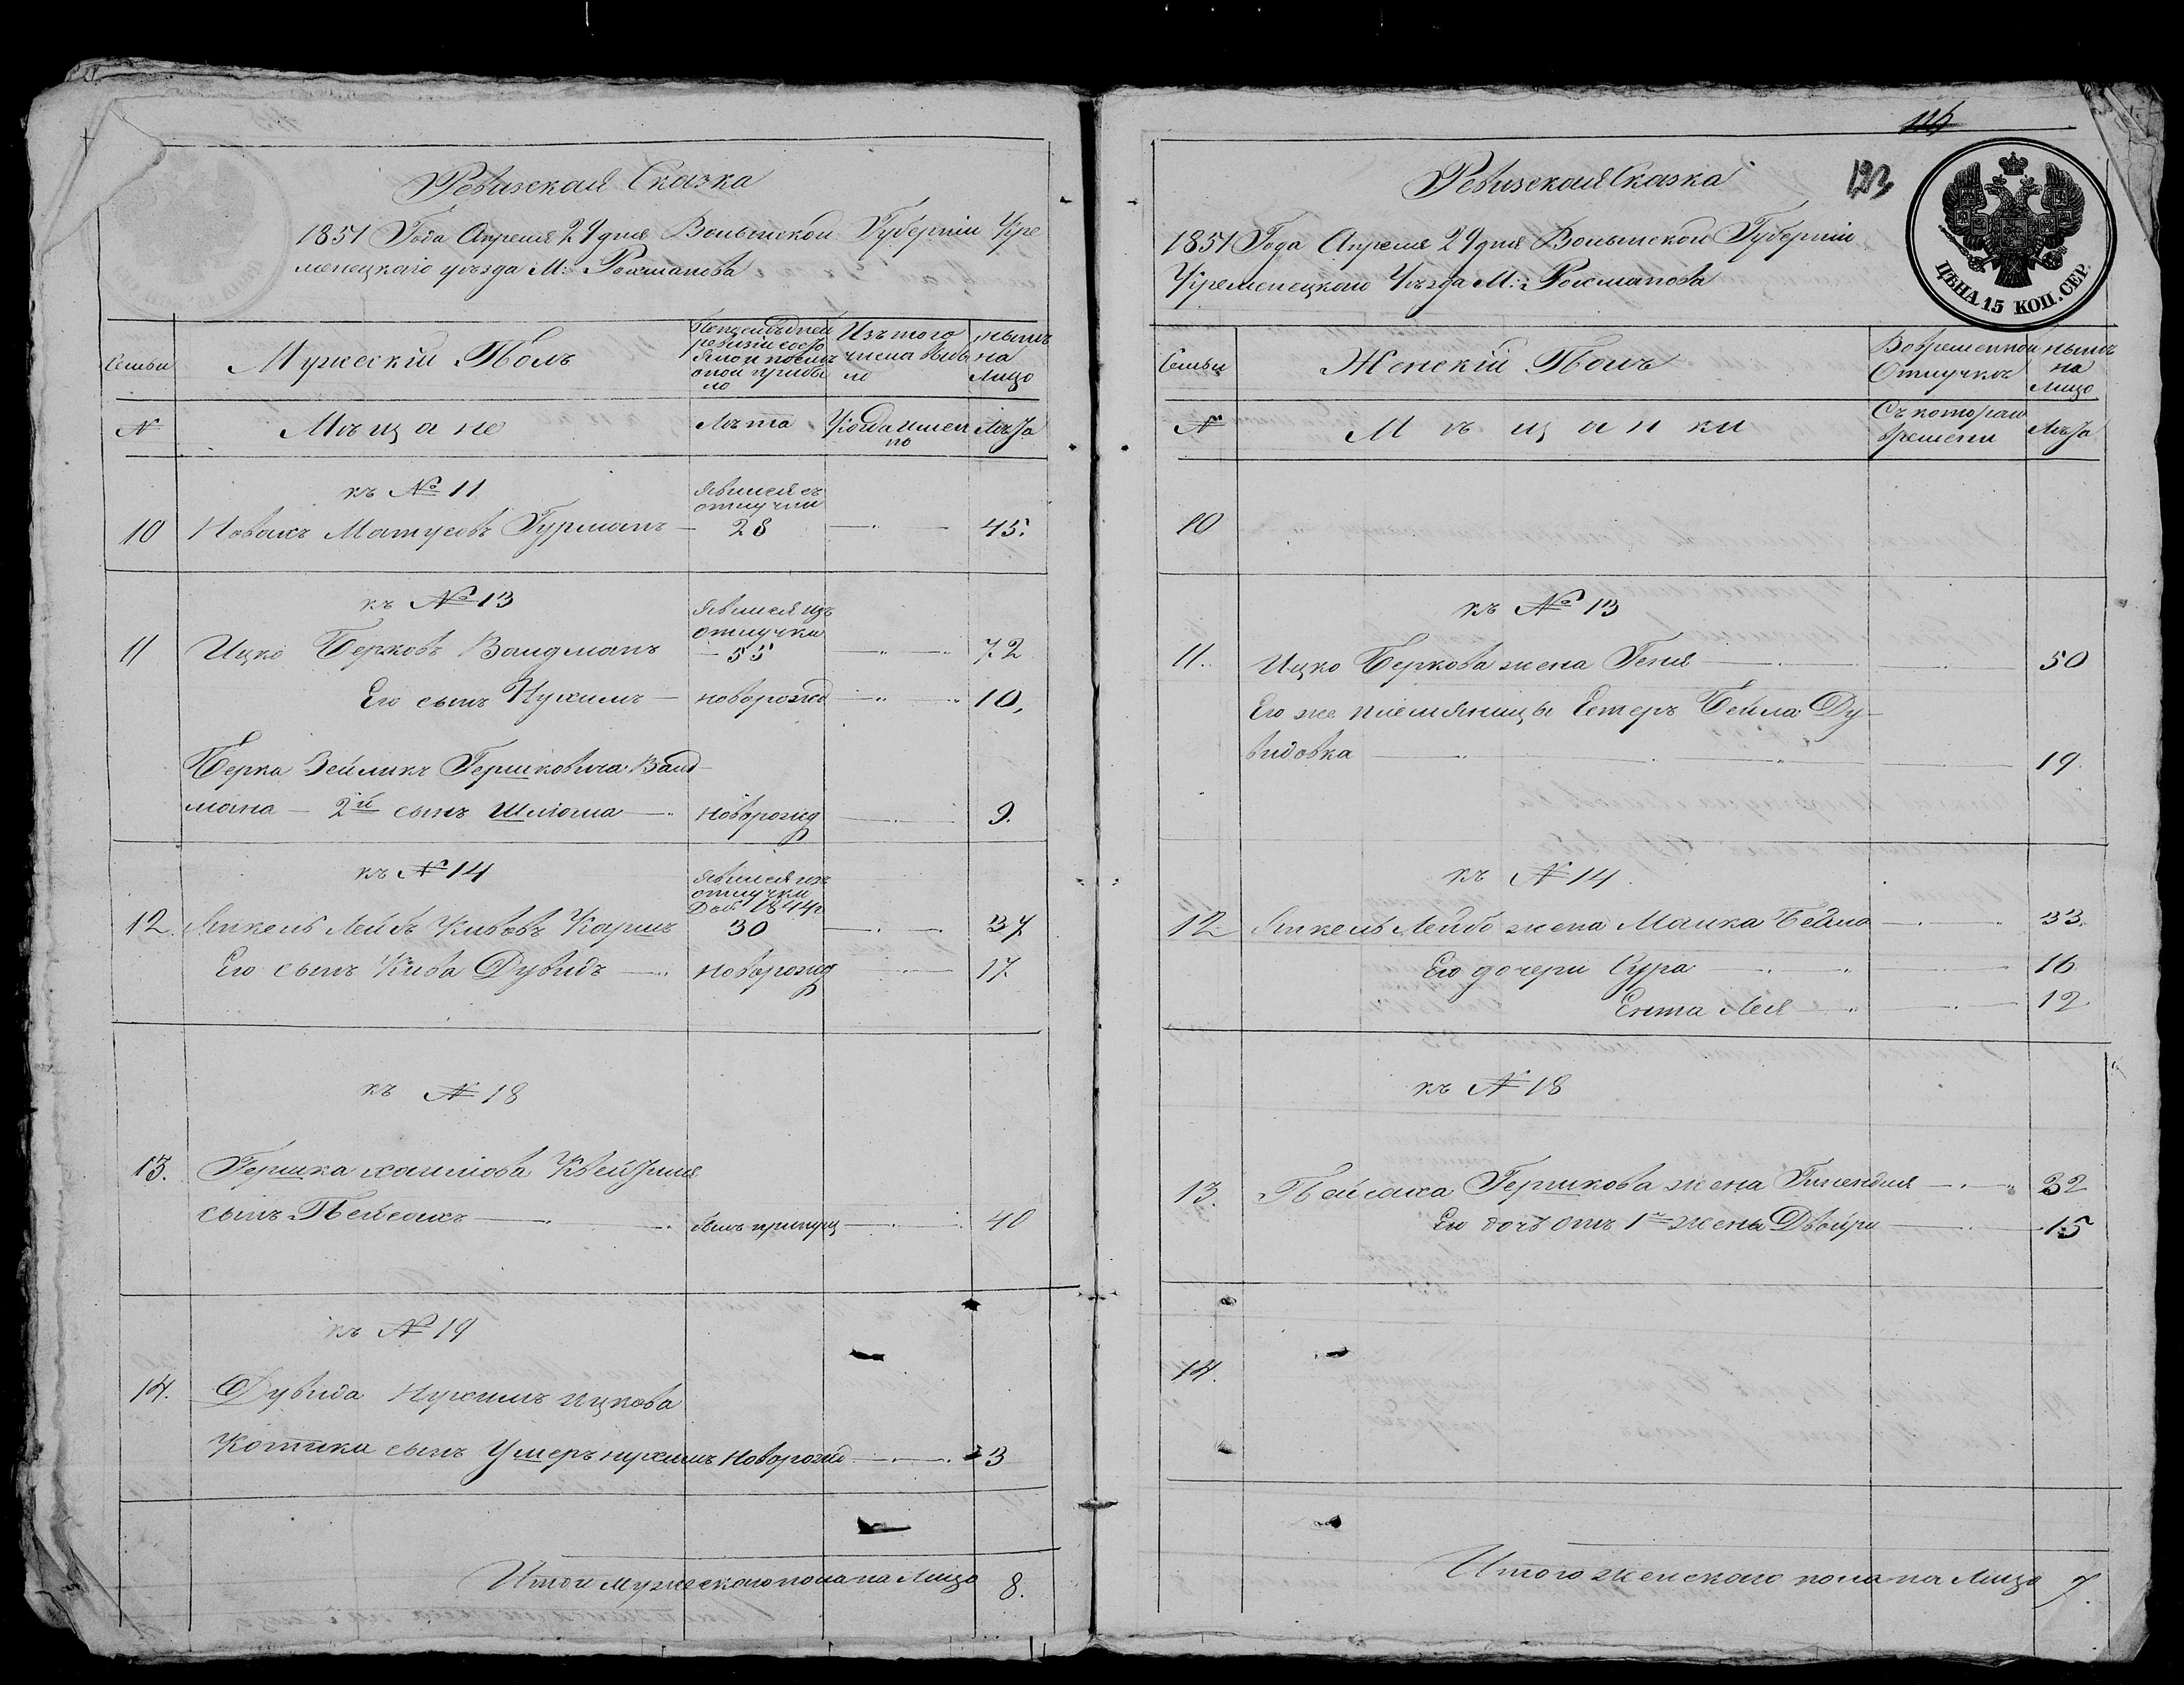 Ревизская Сказка
1851 Года Апреля 29 дня Волынской Губернии Кре
менецкаго уезда М: Рохманова
Семьи
Мужеский Полъ
По последней
ревизии состо
яло и после
оной прибы
ло
Изъ того
числа выбы
ло
ныне
на
Лицо
№
Мещане
Лета
Когда имен
но
Лета
къ № 11
10
Новахъ Матусовъ Гурманъ
явился съ
отлучки
28
45.
къ № 13
11
Ицко Берковъ Вандманъ
явился изъ
отлучки
55
72
Его сынъ Нухимъ
новорожд
10,
Берка Зейликъ Гершковича Ванд
мана — 2й сынъ Шлома
новорожд
9.
къ № 14
12.
Янкель Лейбъ Кивовъ Каршъ
явился изъ
отлучки
1844г
30
37
Его сынъ Кива Дувидъ
новорожд
17.
къ № 18
13.
Гершка хаимова
сынъ Пейсахъ
былъ пропущ
40
къ № 19
14.
Дувида Нухимъ ицкова
Котика сынъ Умеръ нухимъ новорожд
3
Итого мужескаго пола на Лицо 8.
116
123
Ревизская Сказка
1851 Года Апреля 29 дня Волынской Губернии
Кременецкаго Уезда М: Рохманова
ЦѢНА 15 КОП. СЕР.
Семьи
Женский Полъ
Во временной
Отлучке
ныне
на
Лицо
№
Мещанки
Съ котораго
времени
Лета
10
къ № 13
11.
Ицко Беркова жена Геня
50
Его же племянницы Естеръ Бейла Ду-
видовка
19.
къ № 14.
12.
Янкель Лейбо жена Малка Бейла
33.
Его дочери Сура
16
Ента Лея
12.
къ № 18
13.
Пейсаха Гершкова жена
32
Его дочь отъ 1й жены Двойри
15
14.
Итого женскаго пола на Лицо 7.